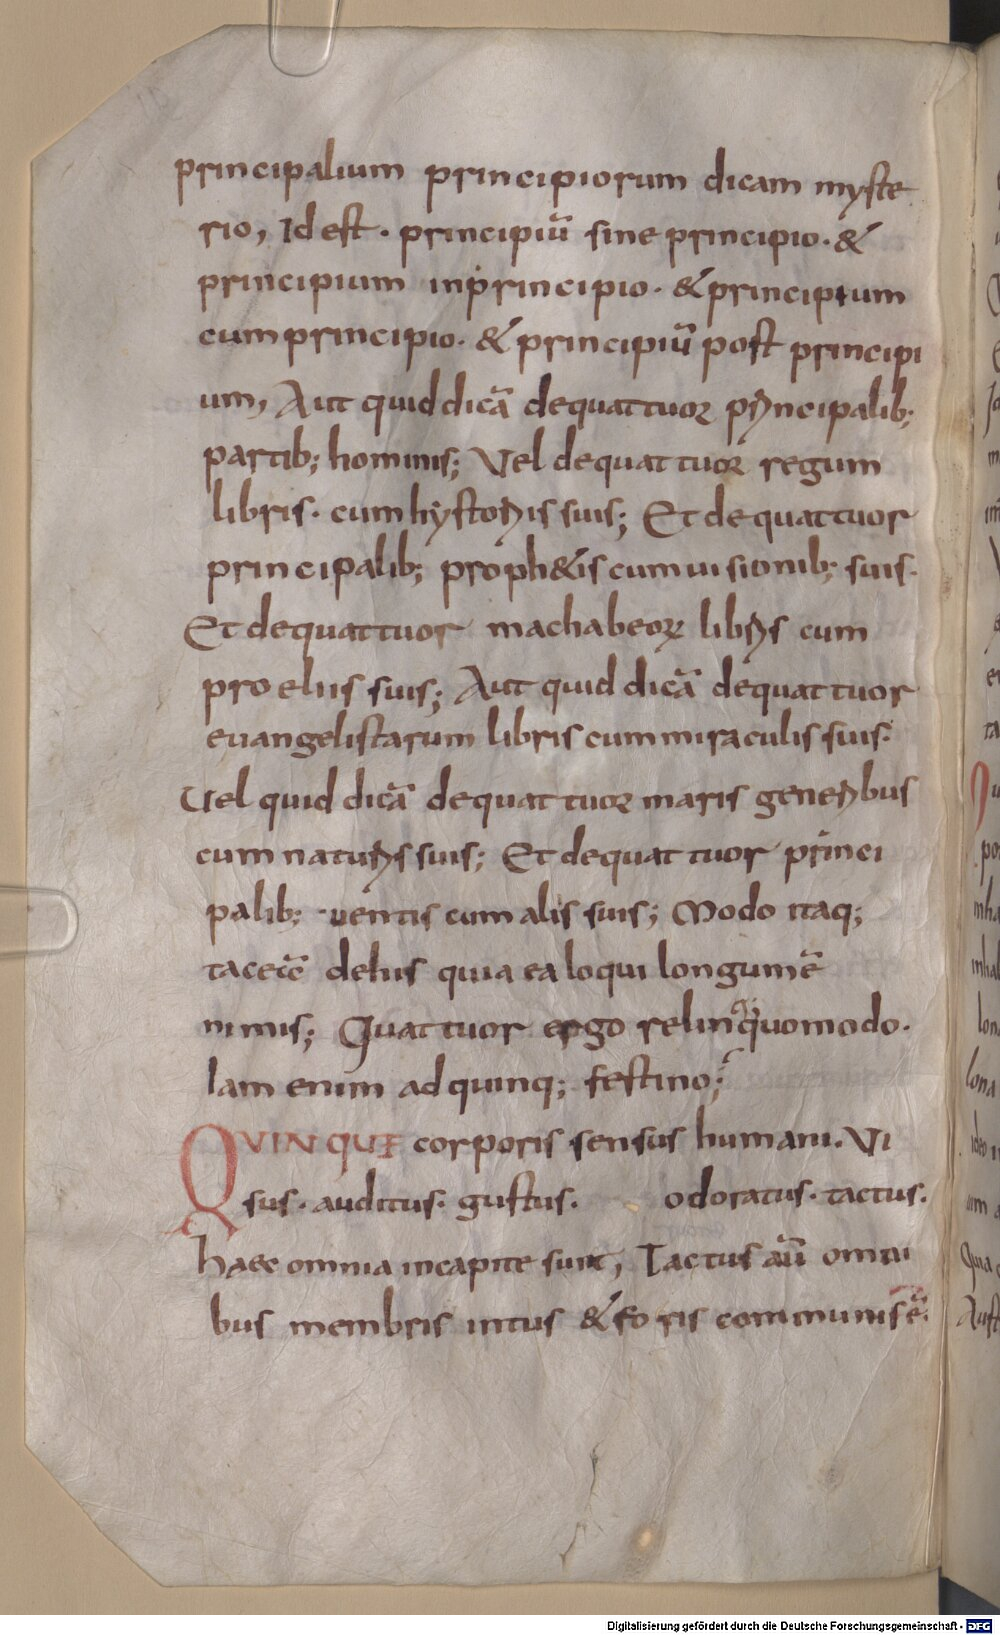 principalium principiorum dicam myste
rio, Id est · principiū sine principio · &
principium inprincipio · & principium
cum principio · & principiū post principi
um, Aut quid dicā dequattuor principalib;
partib; hominis; Vel dequattuor regum
libris · cum hystoriis suis; Et dequattuor
principalib; proph&is cum uisionib; suis ·
Et dequattuor machabeoꝝ libris cum
proeliis suis; Aut quid dicā dequattuor
euangelistarum libris cum miraculis suis ·
Vel quid dicā dequattuor maris generibus
cum naturis suis; Et dequattuor princi
palib; uentis cum alis suis; Modo itaq;
tacetē dehis quia ea loqui longum ē
nimis; Quattuor ergo relinq quomodo ·
Iam enim ad quinq; festino;
QVINQUE corporis sensus humani. Vi
sus · auditus · gustus · odoratus · tactus ·
haec omnia incapite sunt, Tactus aū omni
bus membris intus & foris communis ē ·
Digitalisierung gefördert durch die Deutsche Forschungsgemeinschaft - DFG